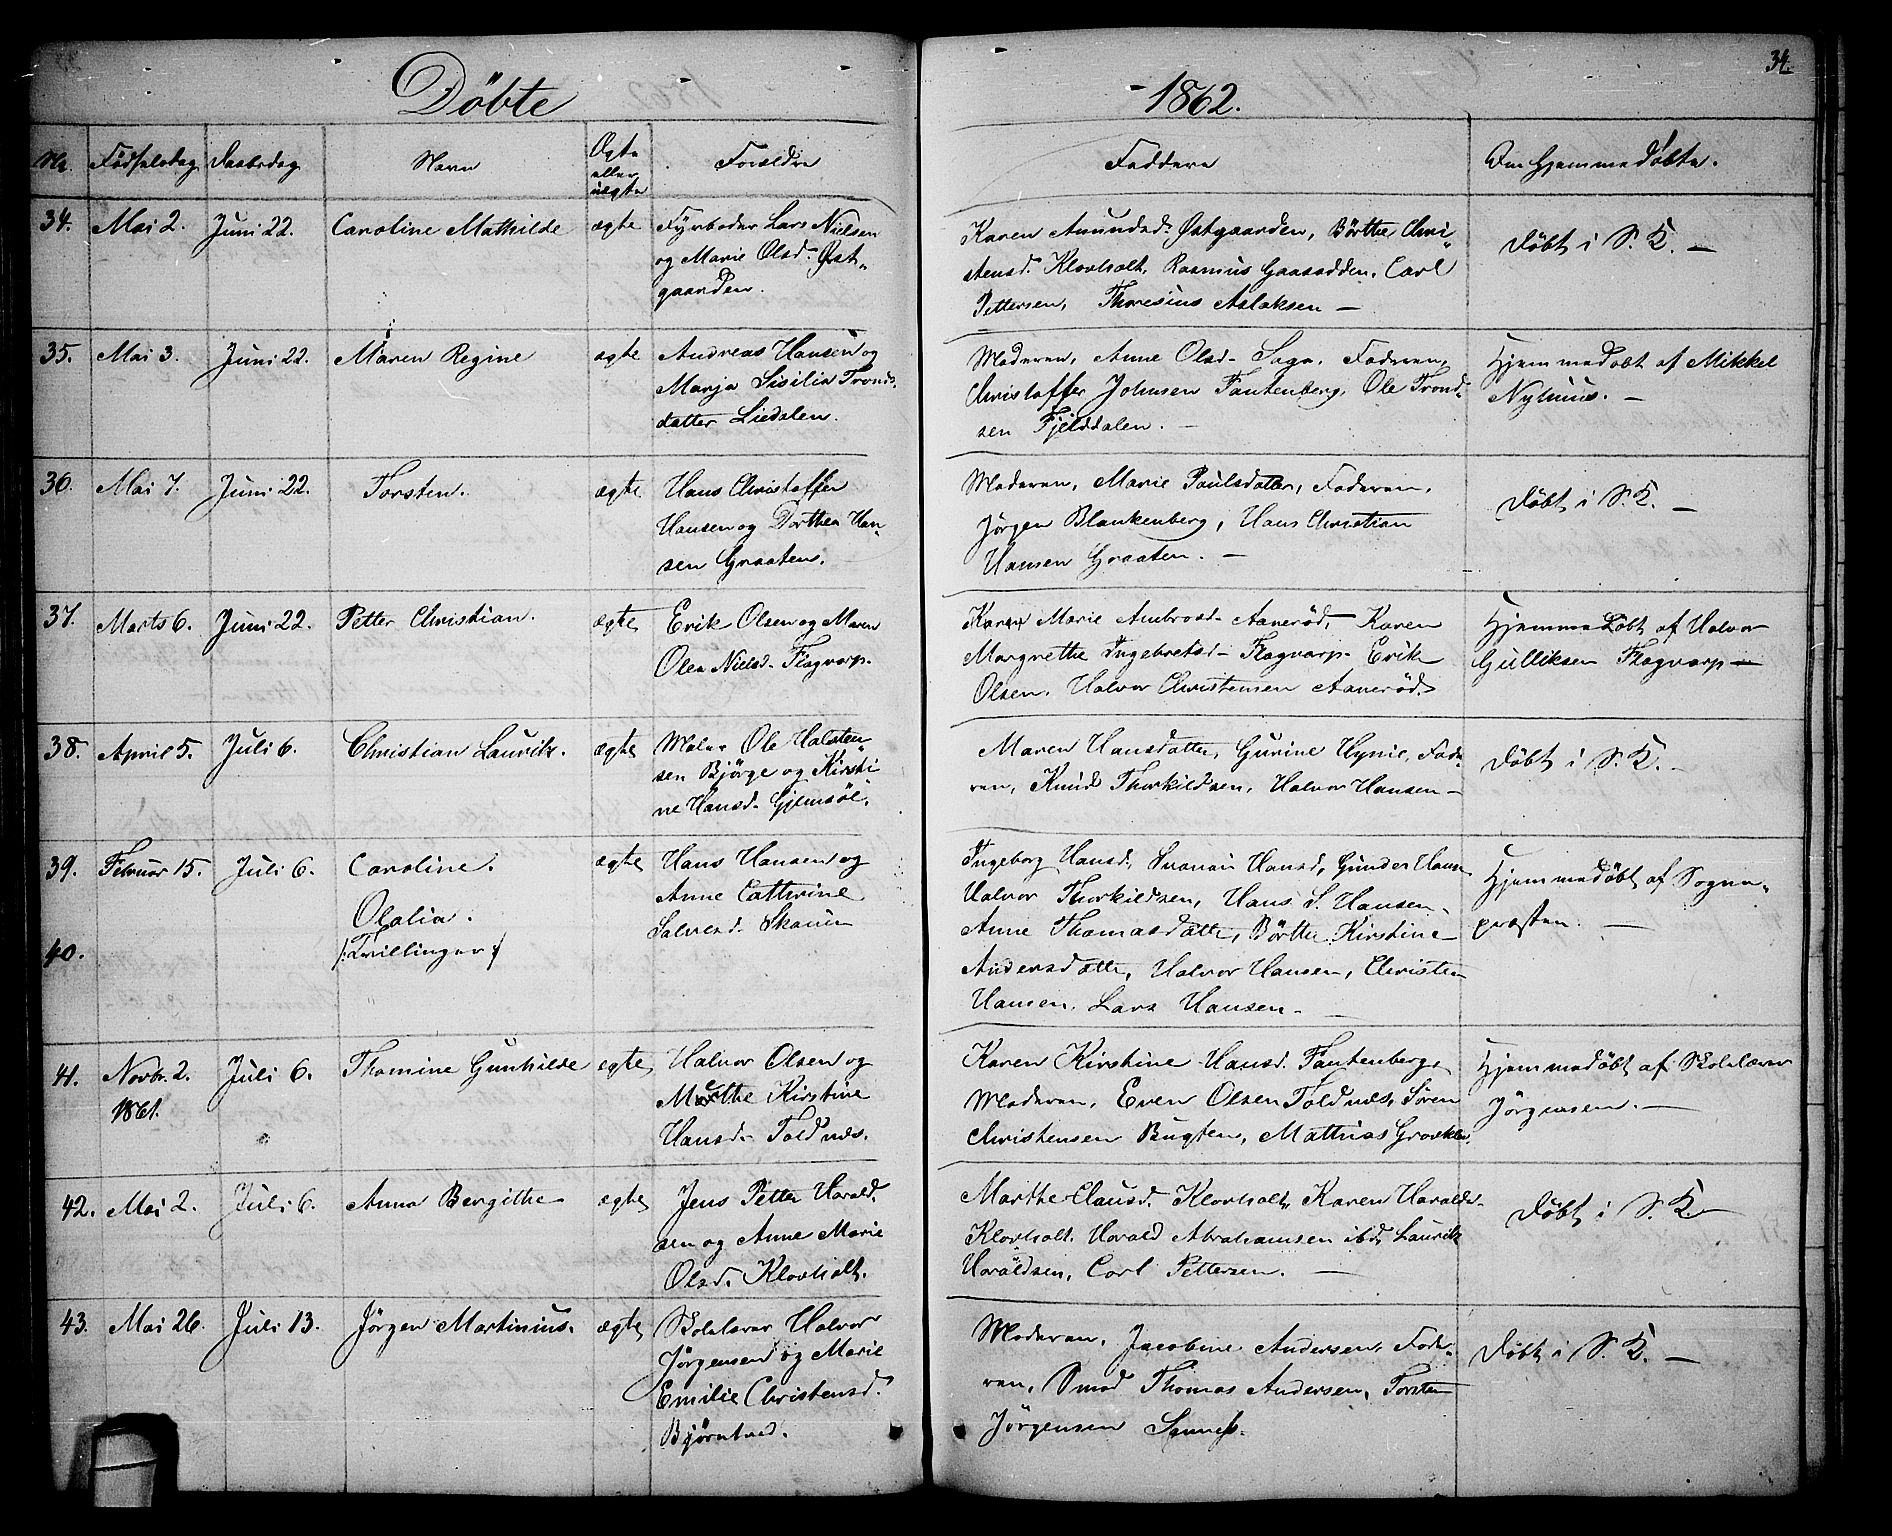 34.
Döbte
1862.
Nr. Fødselsdag Daabsdag Navn Ægte Forældre Faddere Om Hjemmedøbte.
eller
uægte
34. Mai 2. Juni 22. Caroline Mathilde ægte Fyrbøder Lars Nielsen
og Marie Olsd. Øst-
gaarden.
Karen Amundsd. Østgaarden, Börthe Chri-
stensd. Klovholt, Rasmus Gaasodden, Carl
Pettersen, Thoresius Aslaksen —
Døbt i S. K. —
35. Mai 3. Juni 22. Maren Regine ægte Andreas Hansen og
Marja Sisilia Tronds-
datter Liedalen.
Moderen, Anne Olsd. Saga, Faderen,
Christoffer Johnsen Fantenberg, Ole Trond-
sen Fjelddalen. —
Hjemmedøbt af Mikkel
Nyhuus. —
36. Mai 7. Juni 22. Torsten. ægte Hans Christoffer
Hansen og Dorthea Han-
sen Graaten.
Moderen, Marie Paulsdatter, Faderen,
Jörgen Blankenberg, Hans Christian
Hansen Graaten. —
Døbt i S. K. —
37. Marts 6. Juni 22. Petter Christian. ægte Erik Olsen og Maren
Olea Nielsd. Flagvarp.
Karen Marie Ambrosd. Aaneröd, Karen
Margrethe Ingebretsd. Flagvarp. Erik
Olsen, Halvor Christensen Aaneröd.
Hjemmedøbt af Halvor
Gulliksen Flagvarp —
38. April 5. Juli 6. Christian Lauritz. ægte Maler Ole Halsten-
sen Bjørge og Kirsti-
ne Hansd. Gjemsöe.
Maren Hansdatter, Gurine Hynie, Fade-
ren, Knud Thorkildsen, Halvor Hansen —
Døbt i S. K. —
39. Februar 15. Juli 6. Caroline. ægte Hans Hansen og
Anne Cathrine
Salvesd. Skauen
Olalia.
40. /:Tvillinger:/
Ingeborg Hansd., Hansd, Gunder Hansen
Halvor Thorkildsen, Hans S. Hansen,
Anne Thomasdatter, Börthe Kirstine
Andersdatter, Halvor Hansen, Christen
Hansen, Lars Hansen. —
Hjemmedøbt af Sogne-
præsten. —
41. Novbr. 2. Juli 6. Thomine Gunhilde ægte Halvor Olsen og
1861.
Marthe Kirstine
Hansd. Toldnæs.
Karen Kirstine Hansd. Fantenberg,
Moderen, Even Olsen Toldnæs, Sören
Christensen Bugten, Mathias Gravklev.
Hjemmedøbt af Skolelærer
Jörgensen. —
42. Mai 2. Juli 6. Anna Bergithe ægte Jens Petter Harald-
sen og Anne Marie
Olsd. Klovholt.
Marthe Clausd. Klovholt, Karen Haralds.
Klovholt. Harald Abrahamsen ibd. Lauritz
Haraldsen, Carl Pettersen. —
Døbt i S. K. —
43. Mai 26. Juli 13. Jörgen Martinius. ægte Skolelærer Halvor
Jörgensen og Marie
Emilie Christensd.
Björntved.
Moderen, Jacobine Andersen, Fade-
ren, Smed Thomas Andersen, Torsten
Jörgensen Sannes.
Døbt i S. K. —